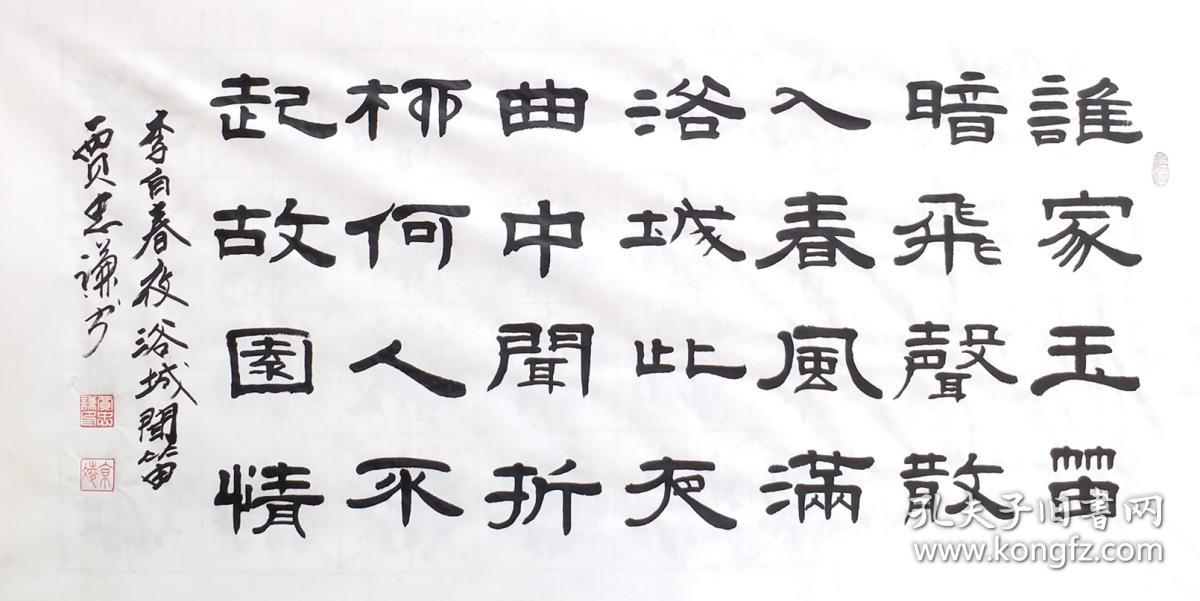 誰家玉笛
暗飛聲散
入春風滿
浴城此夜
曲中聞折
柳何人不
起故園情
李白春夜浴城聞笛
賈忠謙书
孔夫子旧书网
www.kongfz.com